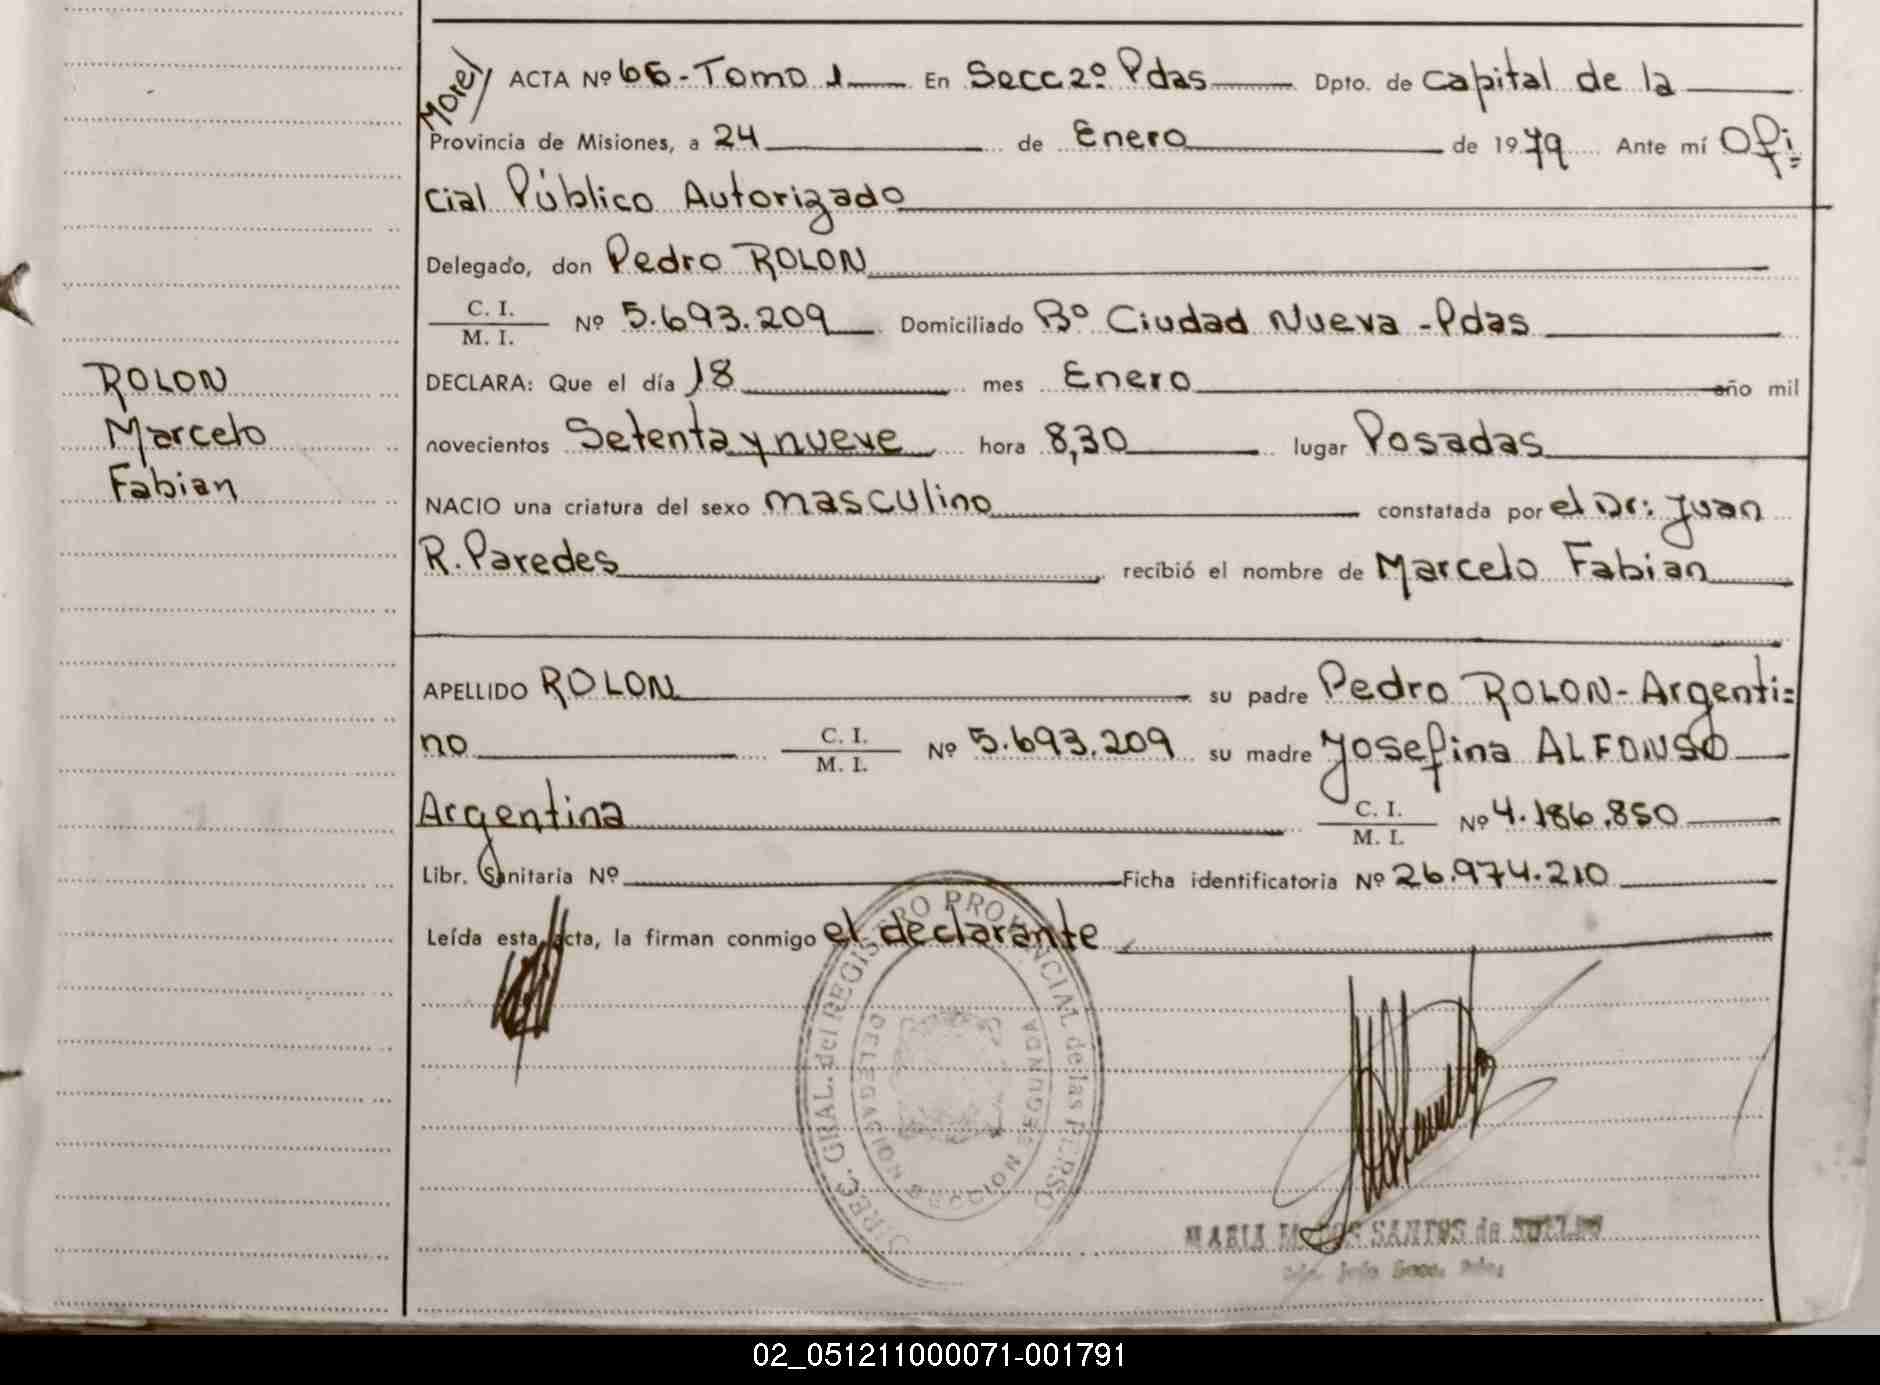 Morel ACTA Nº 66 - Tomo 1 En Secc 2º Pdas Dpto. de Capital de la
Provincia de Misiones, a 24 de Enero de 1979 Ante mí Ofi=
cial Público Autorizado
Delegado, don Pedro ROLON
C. I.
M. I. Nº 5.693.209 Domiciliado Bº Ciudad Nueva - Pdas
ROLON
Marcelo
Fabian
DECLARA: Que el día 18 mes Enero año mil
novecientos Setenta y nueve hora 8,30 lugar Posadas
NACIO una criatura del sexo masculino constatada por el Dr: Juan
R. Paredes recibió el nombre de Marcelo Fabian
APELLIDO ROLON su padre Pedro ROLON - Argenti=
no C. I. M. I. Nº 5.693.209 su madre Josefina ALFONSO
Argentina C. I. M. I. Nº 4.186.850
Libr. Sanitaria Nº Ficha identificatoria Nº 26.974.210
Leída esta acta, la firman conmigo el declarante
DIREC. GRAL. del REGISTRO PROVINCIAL de las PERSO
DELEGACION SEGUNDA
MARIA SANTOS de
02_051211000071-001791